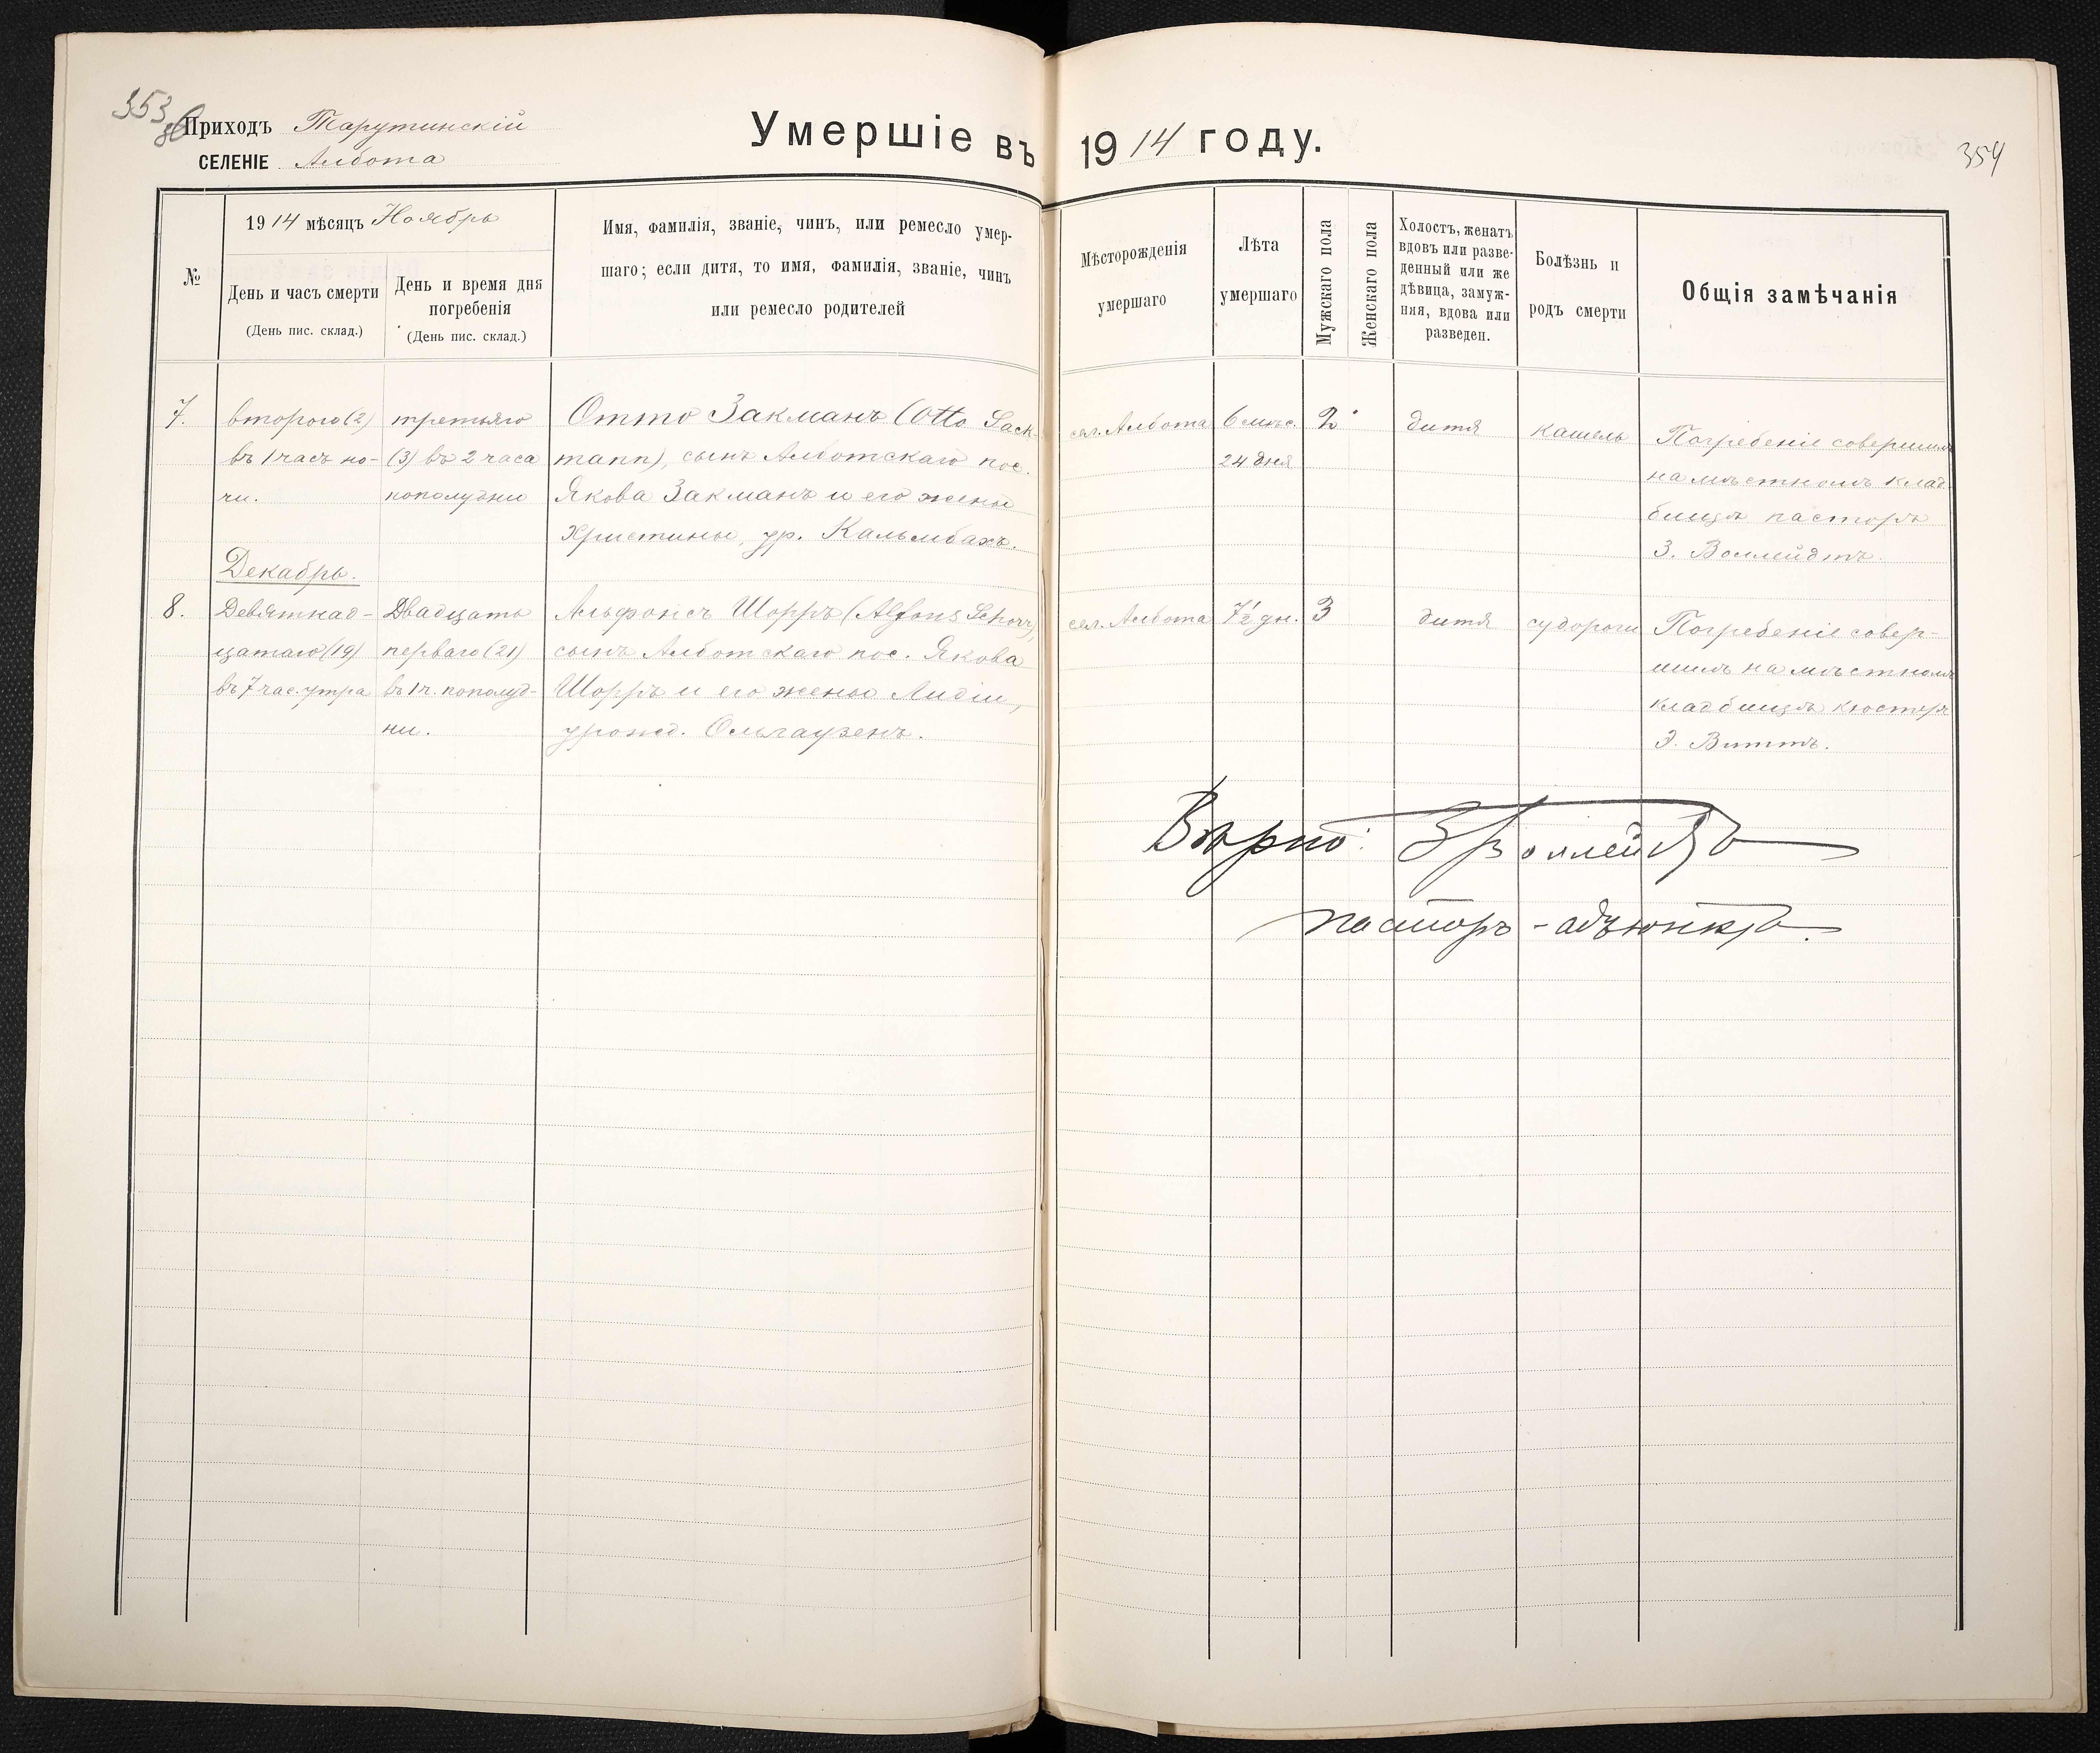 353 об
Приходъ Тарутинскій
СЕЛЕНІЕ Албота
Умершіе въ 1914 году.
354
№
1914 мѣсяцъ Ноябрь
День и часъ смерти
(День пис. склад.)
День и время дня
погребенія
(День пис. склад.)
Имя, фамилія, званіе, чинъ, или ремесло умер-
шаго; если дитя, то имя, фамилія, званіе, чинъ
или ремесло родителей
Мѣсторожденія
умершаго
Лѣта
умершаго
Мужскаго пола
Женскаго пола
Холостъ, женатъ
вдовъ или разве-
денный или же
дѣвица, замуж-
няя, вдова или
разведен.
Болѣзнь и
родъ смерти
Общія замѣчанія
7.
второго (2)
въ 1 часъ но-
чи.
третьяго
(3) въ 2 часа
пополудни
Отто Закманъ (Otto Sack-
mann), сынъ Алботскаго пос.
Якова Закманъ и его жены
Христины, ур. Кальмбахъ.
сел. Албота
6 мѣс.
24 дня
2
дитя
кашель
Погребеніе совершилъ
на мѣстномъ клад-
бищѣ пасторъ
З. Воллейдтъ.
Декабрь.
8.
Девятнад-
цатаго (19)
въ 7 час. утра
Двадцать
перваго (21)
въ 1 ч. пополуд-
ни.
Альфонсъ Шорръ (Alfons Schorr),
сынъ Алботскаго пос. Якова
Шорръ и его жены Лидіи,
урожд. Ольгаузенъ.
сел. Албота
7½ дн.
3
дитя
судороги
Погребеніе совер-
шилъ на мѣстномъ
кладбищѣ кюстеръ
Э. Виттъ.
Вѣрно: З Воллейдтъ
пасторъ-адъюнктъ.